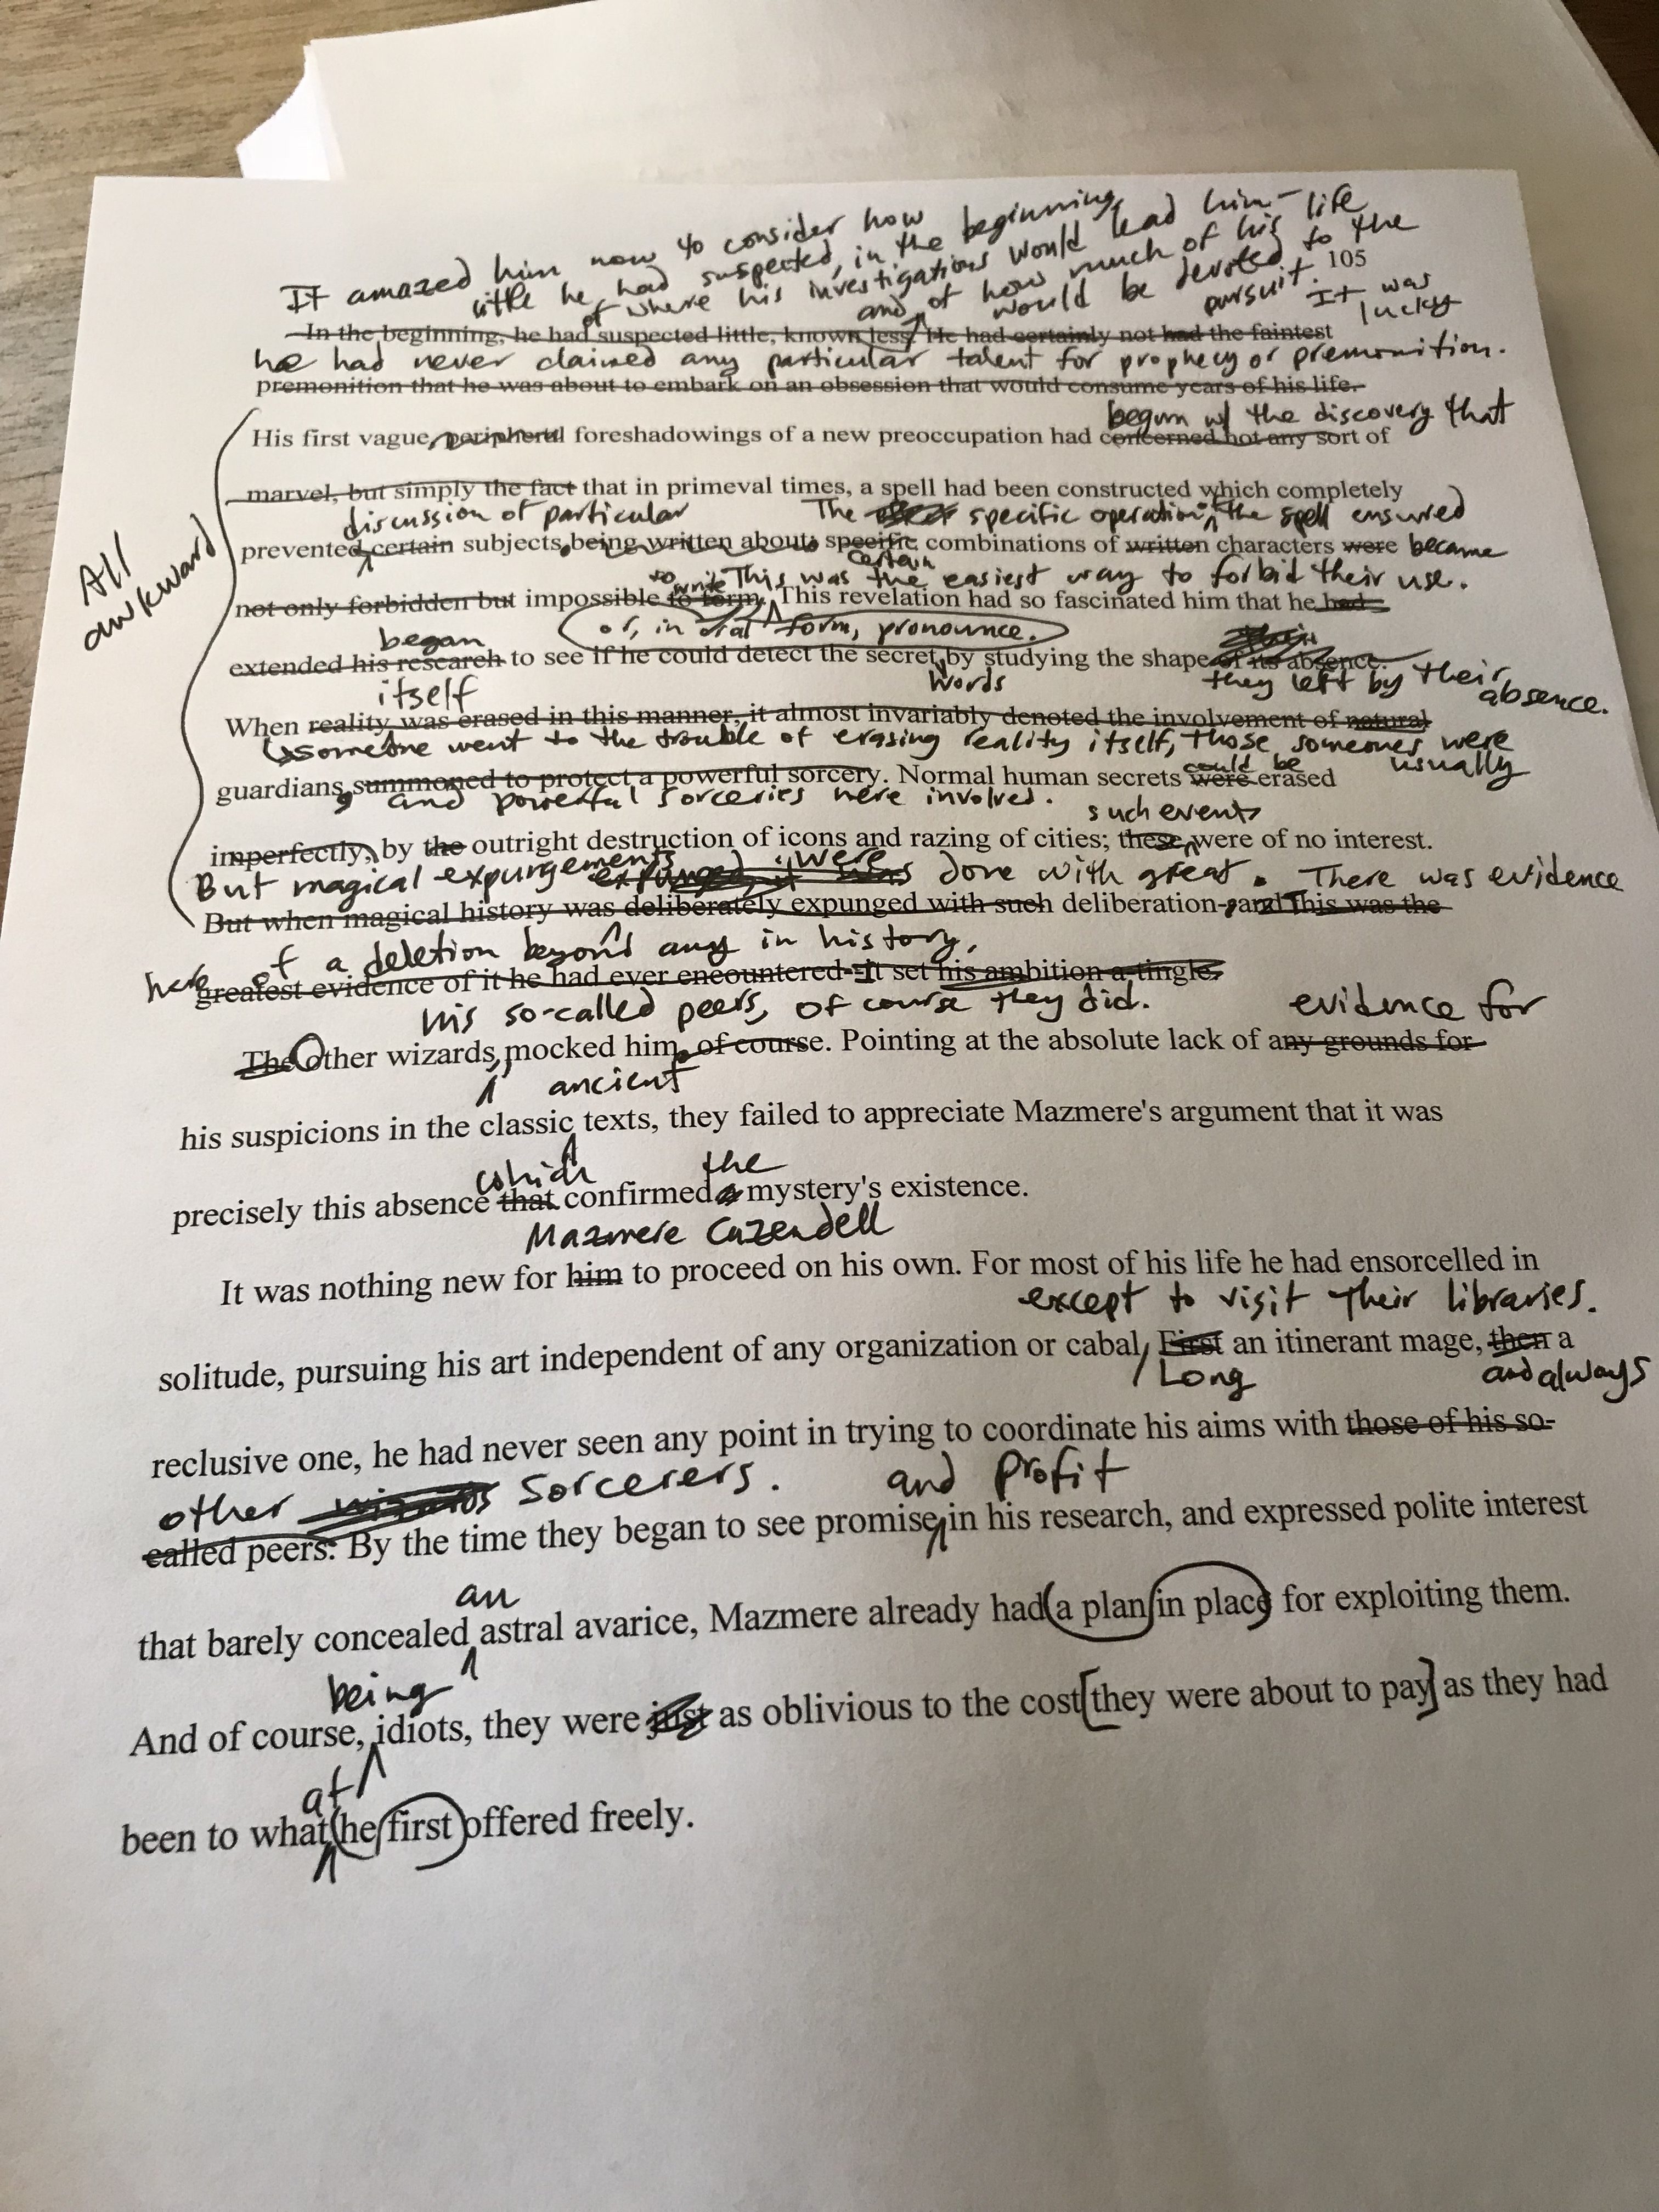 It amazed him now to consider how
little he had suspected, in the beginning,
of where his investigations would lead him—
and of how much of his life
would be devoted to the
pursuit. It was
lucky
105
In the beginning, he had suspected little, known less. He had certainly not had the faintest
he had never claimed any particular talent for prophecy or premonition.
premonition that he was about to embark on an obsession that would consume years of his life.
begun w/ the discovery that
His first vague, peripheral foreshadowings of a new preoccupation had concerned not any sort of
marvel, but simply the fact that in primeval times, a spell had been constructed which completely
discussion of particular
The specific operation of the spell ensured
prevented certain subjects being written about: specific combinations of written characters were became
certain
to write This was the easiest way to forbid their use.
not only forbidden but impossible to form. This revelation had so fascinated him that he had
or, in oral form, pronounce.
began
extended his research to see if he could detect the secret by studying the shape of its absence.
itself
words
they left by their
absence.
When reality was erased in this manner, it almost invariably denoted the involvement of natural
someone went to the trouble of erasing reality itself, those someones were
usually
guardians summoned to protect a powerful sorcery. Normal human secrets were erased
could be
and powerful sorceries were involved.
such events
imperfectly, by the outright destruction of icons and razing of cities; these were of no interest.
But magical expurgements were done with great. There was evidence
But when magical history was deliberately expunged with such deliberation- and This was the
here of a deletion beyond any in history,
greatest evidence of it he had ever encountered-It set his ambition a-tingle.
his so-called peers, of course they did.
evidence for
The Other wizards, mocked him, of course. Pointing at the absolute lack of any grounds for
ancient
his suspicions in the classic texts, they failed to appreciate Mazmere's argument that it was
which
the
precisely this absence that confirmed a mystery's existence.
Mazmere Cazendell
It was nothing new for him to proceed on his own. For most of his life he had ensorcelled in
except to visit their libraries.
solitude, pursuing his art independent of any organization or cabal, First an itinerant mage, then a
Long
and always
reclusive one, he had never seen any point in trying to coordinate his aims with those of his so-
other wizards sorcerers.
and profit
called peers. By the time they began to see promise in his research, and expressed polite interest
an
that barely concealed astral avarice, Mazmere already had a plan in place for exploiting them.
being
And of course, idiots, they were just as oblivious to the cost [they were about to pay] as they had
at
been to what he first offered freely.
All
awkward